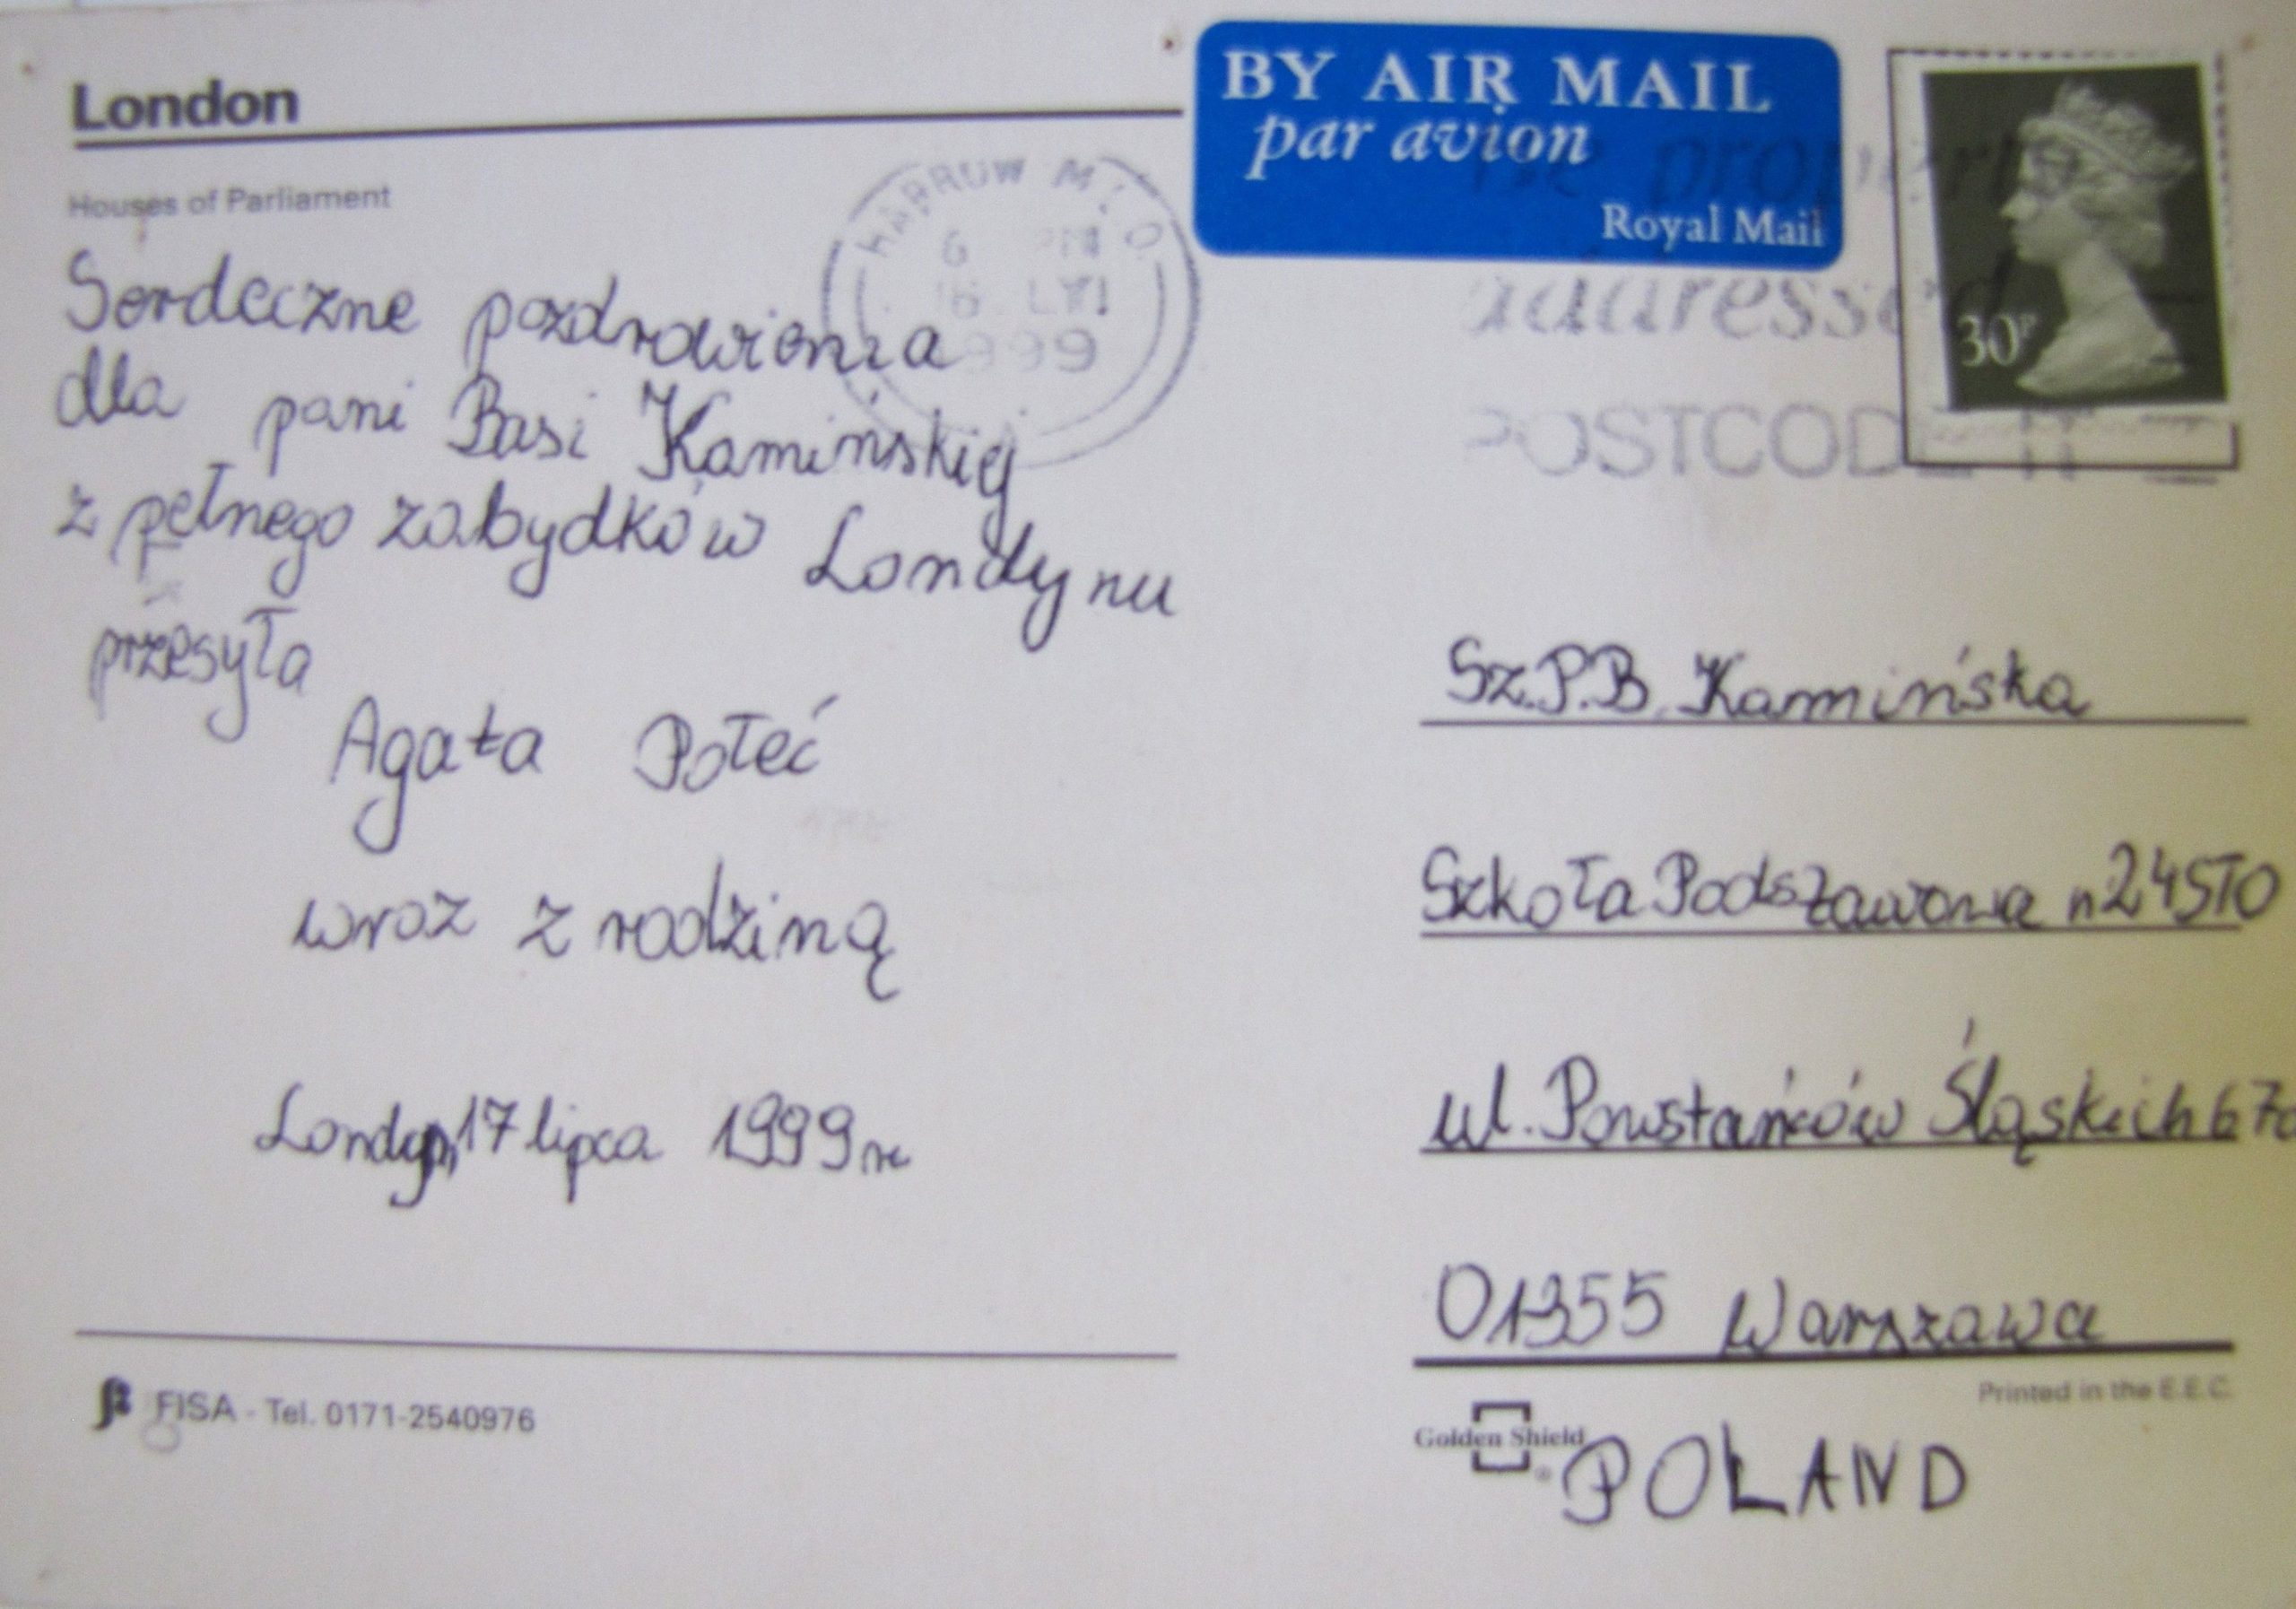 London
Houses of Parliament
Serdeczne pozdrowienia
dla pani Basi Kamińskiej
z pełnego zabydków Londynu
przesyła
Agata Połeć
wraz z rodziną
Londyn, 17 lipca 1999r
FISA - Tel. 0171-2540976
HARROW M.L.O.
6 PM
1999
BY AIR MAIL
par avion
Royal Mail
be properly
addressed
POSTCODE IT
30P
Sz.P.B. Kamińska
Szkoła Podstawowa n24STO
ul. Powstańców Śląskich 67a
01355 Warszawa
Printed in the E.E.C.
Golden Shield
POLAND